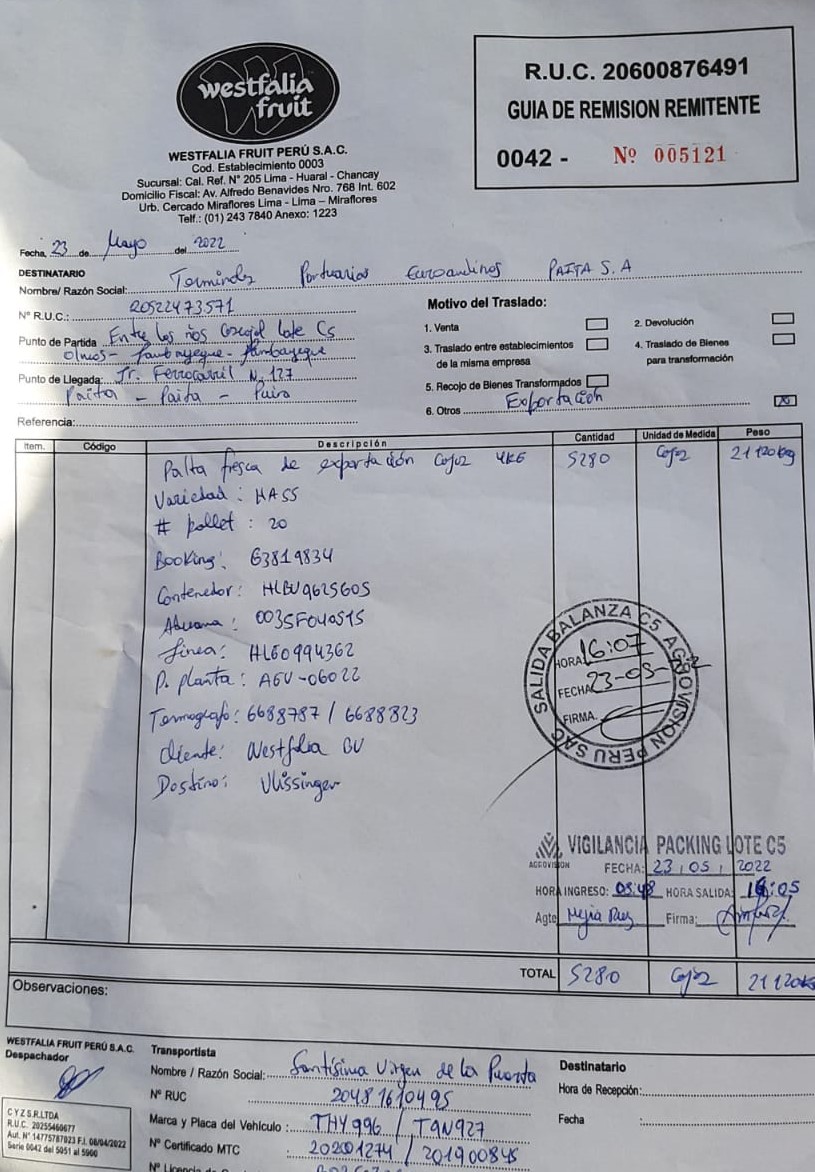 westfalia
fruit
WESTFALIA FRUIT PERÚ S.A.C.
Cod. Establecimiento 0003
Sucursal: Cal. Ref. N° 205 Lima - Huaral - Chancay
Domicilio Fiscal: Av. Alfredo Benavides Nro. 768 Int. 602
Urb. Cercado Miraflores Lima - Lima – Miraflores
Telf.: (01) 243 7840 Anexo: 1223
R.U.C. 20600876491
GUIA DE REMISION REMITENTE
0042 - Nº 005121
Fecha, 23 de Mayo del 2022
DESTINATARIO
Nombre/ Razón Social: Terminales Portuarios Euroandinos PAITA S.A
N° R.U.C.: 20522473571
Punto de Partida Entre los rios Cascajal Lote C5
Olmos - Lambayeque - Lambayeque
Punto de Llegada: Jr. Ferrocarril N. 127
Paita - Paita - Piura
Referencia:
Motivo del Traslado:
1. Venta
2. Devolución
3. Traslado entre establecimientos
de la misma empresa
4. Traslado de Bienes
para transformación
5. Recojo de Bienes Transformados
6. Otros Exportación
Item. Código Descripción Cantidad Unidad de Medida Peso
Palta fresca de exportación Cajas 4KG 5280 Cajas 21120kg
Variedad : HASS
# pallet : 20
Booking: 63819834
Contenedor: HLBU9625605
Aduana : 0035F040515
Linea: HLG0994362
P. planta : AGV-06022
Termografo: 6688787 / 6688823
Cliente: Westfalia BV
Destino: Vlissinger
SALIDA BALANZA C5 AGROVISION PERU SAC
HORA 16:07
FECHA 23-05-2022
FIRMA
VIGILANCIA PACKING LOTE C5
AGROVISION
FECHA: 23 / 05 / 2022
HORA INGRESO: 08:48 HORA SALIDA: 16:05
Agte Mejia Firma:
TOTAL 5280 Cajas 21120kg
Observaciones:
WESTFALIA FRUIT PERÚ S.A.C.
Despachador
C Y Z S.R.LTDA
R.U.C. 20255460677
Aut. N° 14775787023 F.I. 08/04/2022
Serie 0042 del 5051 al 5900
Transportista
Nombre / Razón Social: Santísima Virgen de la Puerta
N° RUC 20481610495
Marca y Placa del Vehículo : THY996 / T9N927
N° Certificado MTC : 20201274 / 201900845
N° Licencia de
Destinatario
Hora de Recepción:
Fecha